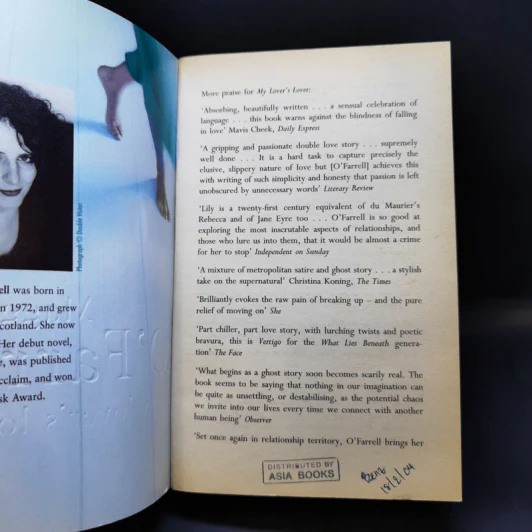 Photograph © Double Vision
ell was born in
n 1972, and grew
cotland. She now
Her debut novel,
, was published
cclaim, and won
sk Award.
More praise for My Lover's Lover:
'Absorbing, beautifully written . . . a sensual celebration of
language . . . this book warns against the blindness of falling
in love' Mavis Cheek, Daily Express
'A gripping and passionate double love story . . . supremely
well done . . . It is a hard task to capture precisely the
elusive, slippery nature of love but [O'Farrell] achieves this
with writing of such simplicity and honesty that passion is left
unobscured by unnecessary words' Literary Review
'Lily is a twenty-first century equivalent of du Maurier's
Rebecca and of Jane Eyre too . . . O'Farrell is so good at
exploring the most inscrutable aspects of relationships, and
those who lure us into them, that it would be almost a crime
for her to stop' Independent on Sunday
'A mixture of metropolitan satire and ghost story . . . a stylish
take on the supernatural' Christina Koning, The Times
'Brilliantly evokes the raw pain of breaking up – and the pure
relief of moving on' She
'Part chiller, part love story, with lurching twists and poetic
bravura, this is Vertigo for the What Lies Beneath genera-
tion' The Face
'What begins as a ghost story soon becomes scarily real. The
book seems to be saying that nothing in our imagination can
be quite as unsettling, or destabilising, as the potential chaos
we invite into our lives every time we connect with another
human being' Observer
'Set once again in relationship territory, O'Farrell brings her
DISTRIBUTED BY
ASIA BOOKS
18/2/04